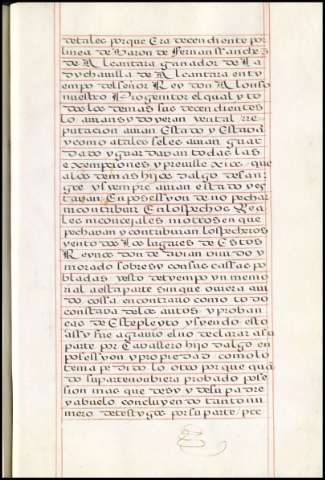 de tales porque Era decendiente por
linea de Varon de Fernan Sanchez
de Alcantara ganador de la
dycha villa de Alcantara en ty
empo del señor Rey don Alonso
nuestro Progenitor el qual y to
dos los demas sus decendientes
lo auian sydo y eran y en tal rre
putacion auian Estado y Estauã
y como a tales se les auian guar
dado y guardauan todas las
exsempciones y preuillexios que
a los demas hijos dalgo de san
gre y syempre auian estado y es
tauan En posesyon de no pechar
ni contribuir En los pechos Rea
les ni concejales ni otros en que
pechauan y contribuian los pecheros
vezinos de los lugares de Estos
Reynos donde auian viuido y
morado sobre sy con sus cassas po
bladas y esto de tyempo ynmemo
rial a esta parte sin que ouiera aui
do cossa en contrario como todo
constaua de los autos y prouan
cas de Este pleyto y syendo esto
assy fue agrauio el no declarar a su
parte por Cavallero hijo dalgo en
posesyon y propiedad como lo
tenia pedido lo otro por que quã
do su parte no ubiera probado pose
sion mas que de sy y de su padre
y abuelo concluyendo tanto nu
mero de testygos por su parte pre